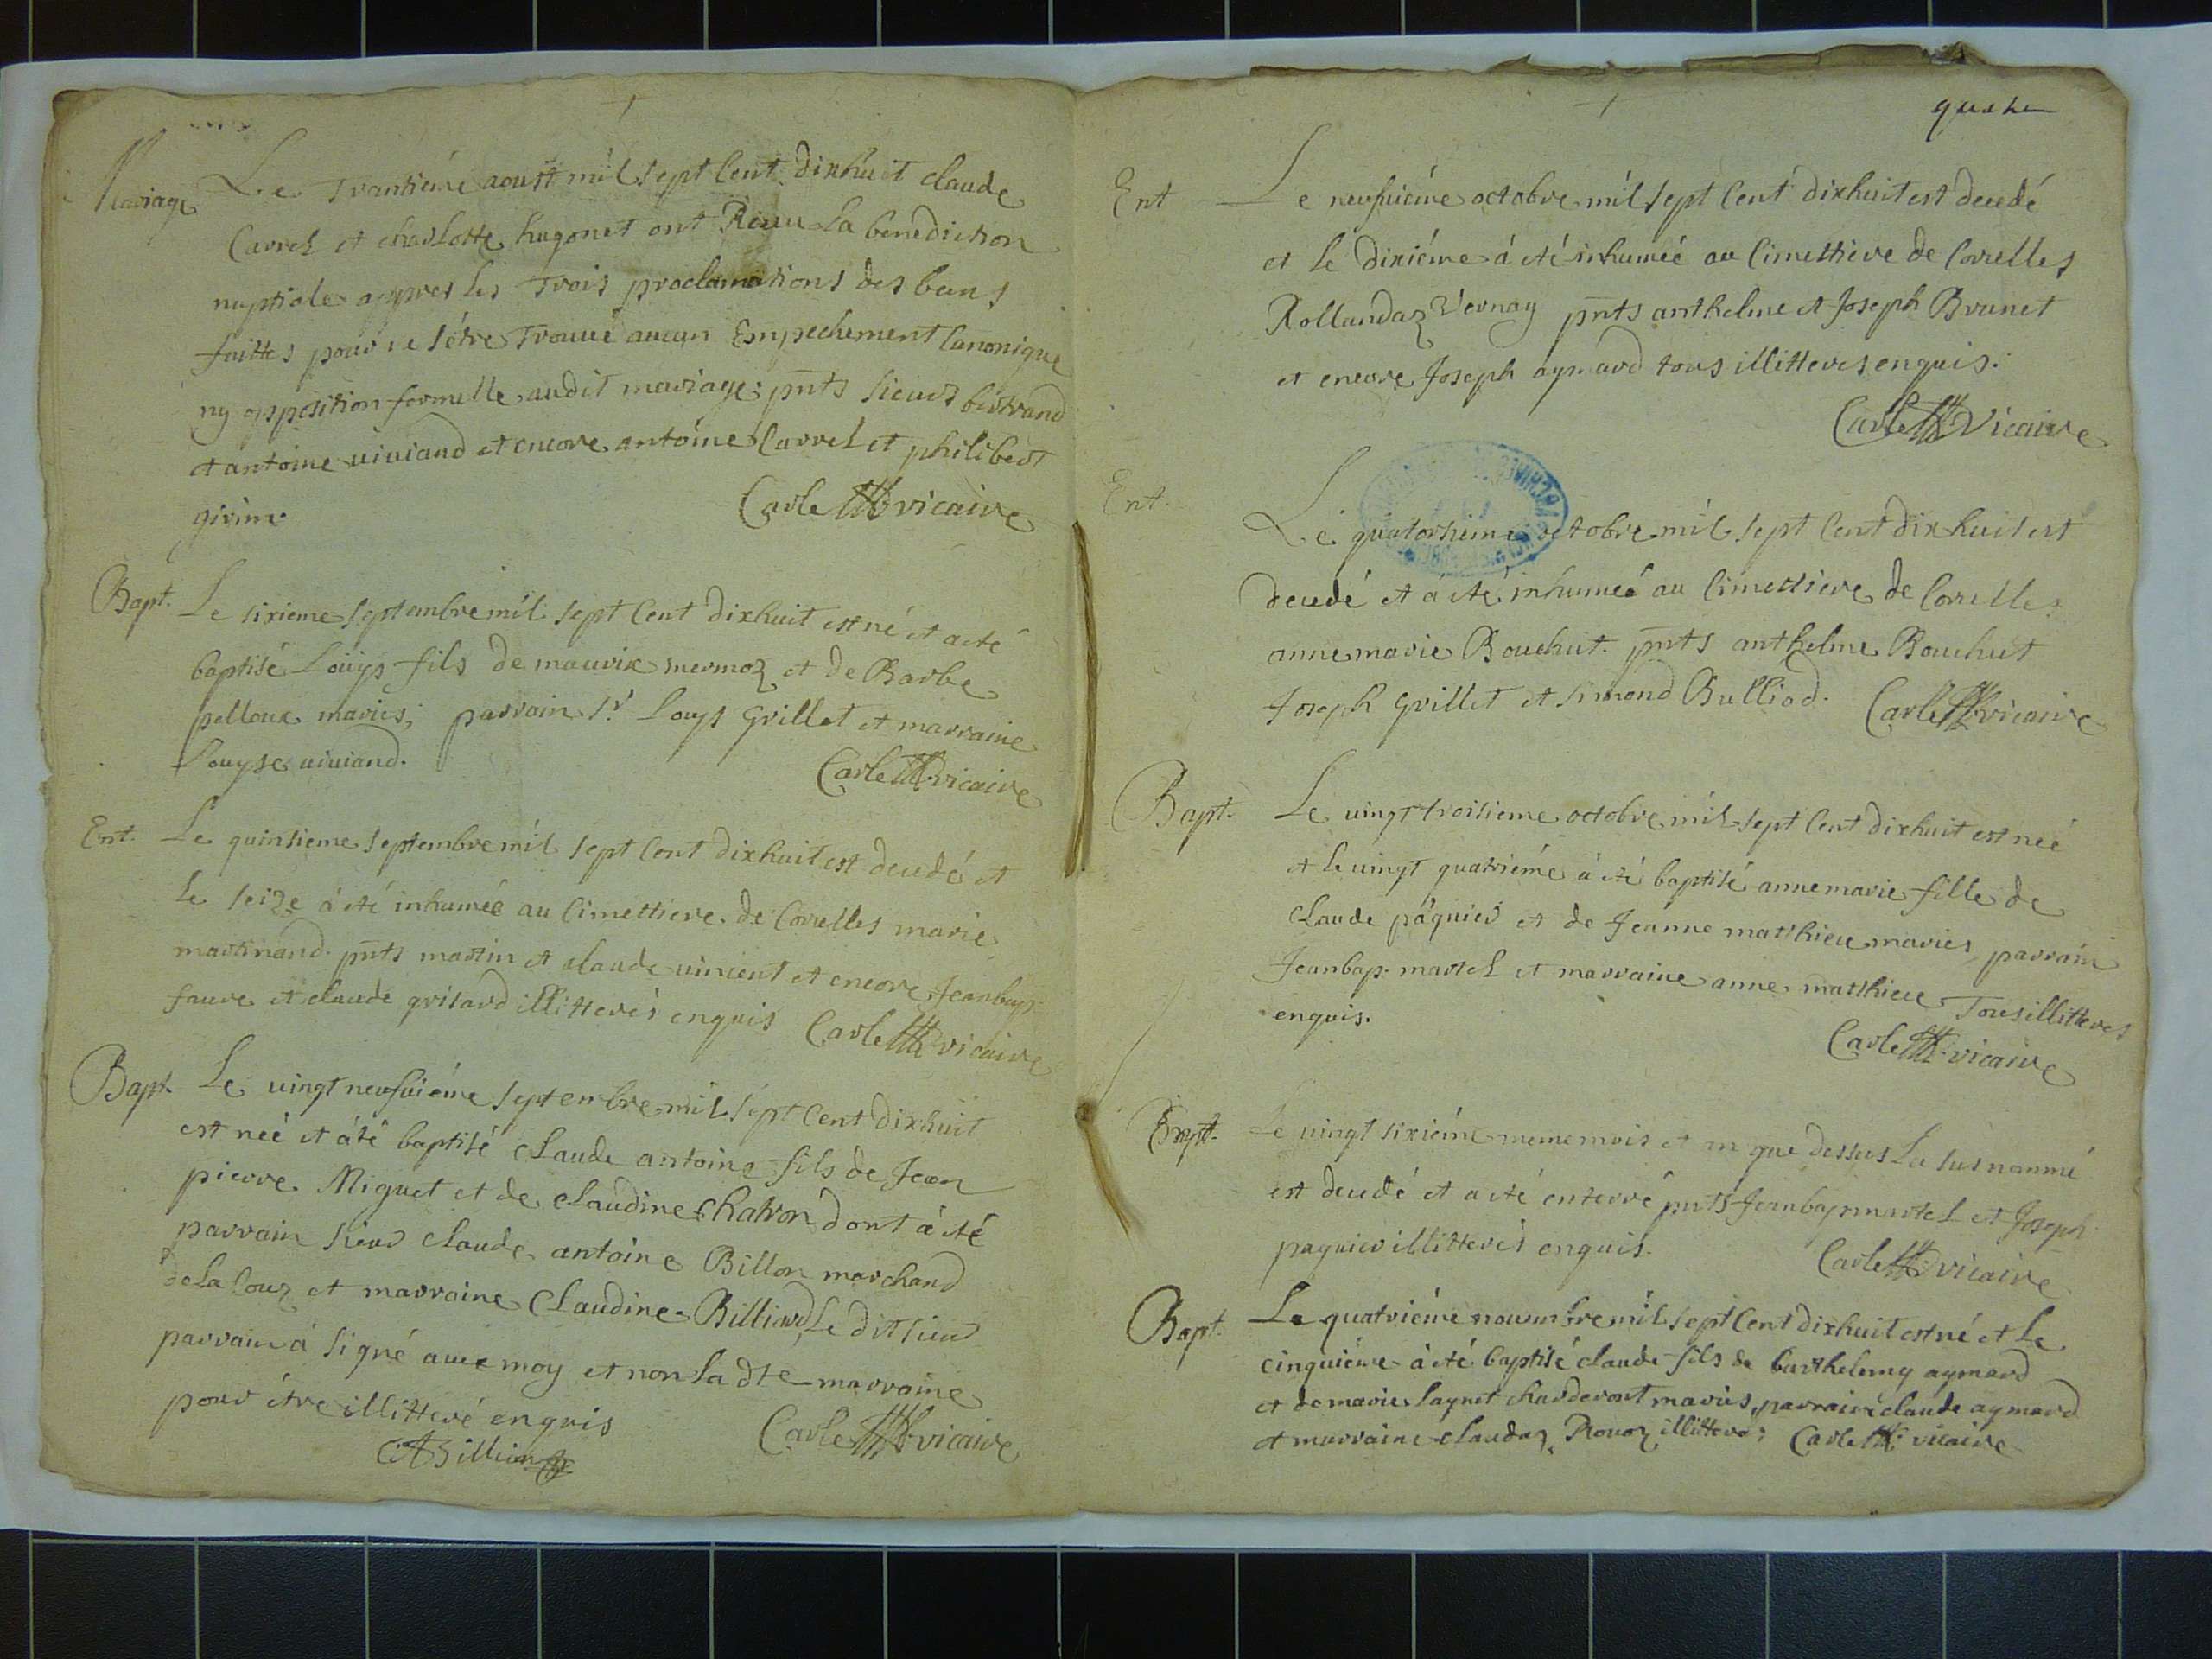 Mariage
Le Trantiéme aoust mil sept Cent dixhuit claude
Carrel et charlotte hugonet ont Receu La benediction
nuptiale appres les Trois proclamations des bans
faittes pour ne sétre Trouué aucun Empechement Canonique
ny opposition formelle audit mariage; pnts sieurs bertrand
et antoine uiuiand et encore antoine Carrel et philibert
girin.
Carle vicaire
Bapt.
Le sixieme septembre mil sept Cent dixhuit est né et a eté
baptisé Loüys fils de maurix mermoz et de Barbe
pelloux mariés; parrain Sr Louys Grillet et marraine
Louyse uiuiand.
Carle vicaire
Ent.
Le quinsieme septembre mil sept Cent dixhuit est decedé et
Le seize à eté inhuméé au Cimettiere de Corelles marie
martinand. pnts martin et claude uincent et encore Jeanbap.
faure et claude grisard illitterés enquis
Carle vicaire
Bapt.
Le uingt neufuiéme septembre mil sépt Cent dixhuit
est neé et áté baptisé Claude antoine fils de Jean
pierre Miguet et de Claudine Chatron dont à été
parrain sieur Claude antoine Billon marchand
de La Couz et marraine Claudine Billiard, Le dit sieur
parrain á signé auec moy et non La dte marraine
pour étre illitteré enquis
Carle vicaire
CABillion
Ent
Le neufuiéme octobre mil sept Cent dixhuit est decedé
et le dixiéme á eté inhuméé au Cimettiere de Corelles
Rollandaz Vernay pnts anthelme et Joseph Brunet
et encore Joseph aymard tous illitteres enquis.
Carle Vicaire
Ent.
Le quatorsieme octobre mil sept Cent dixhuit est
decedé et á eté inhumeé au Cimettiere de Corelles
anne marie Bouchut. pnts anthelme Bouchut
Joseph Grillet et simond Bulliod.
Carle vicaire
Bapt.
Le uingt troisieme octobre mil sept Cent dixhuit est neé
et le uingt quatriéme á eté baptisé anne marie fille de
Claude páquier et de Jeanne matthieu mariés, parrain
Jeanbap. martel et marraine anne matthieu Tous illitteres
enquis.
Carle vicaire
Ent.
Le uingt sixiéme meme mois et an que dessus La susnommé
est decedé et a eté enterré pnts Jeanbap. martel et Joseph
paquier illitterés enquis.
Carle vicaire
Bapt.
Le quatriéme nouembre mil sept Cent dixhuit est né et Le
cinquiéme à eté baptisé claude fils de barthelemy aymard
et de marie Laynet charderont mariés, parrain claude aymard
et marraine claudaz Rouoz illitterés;
Carle vicaire